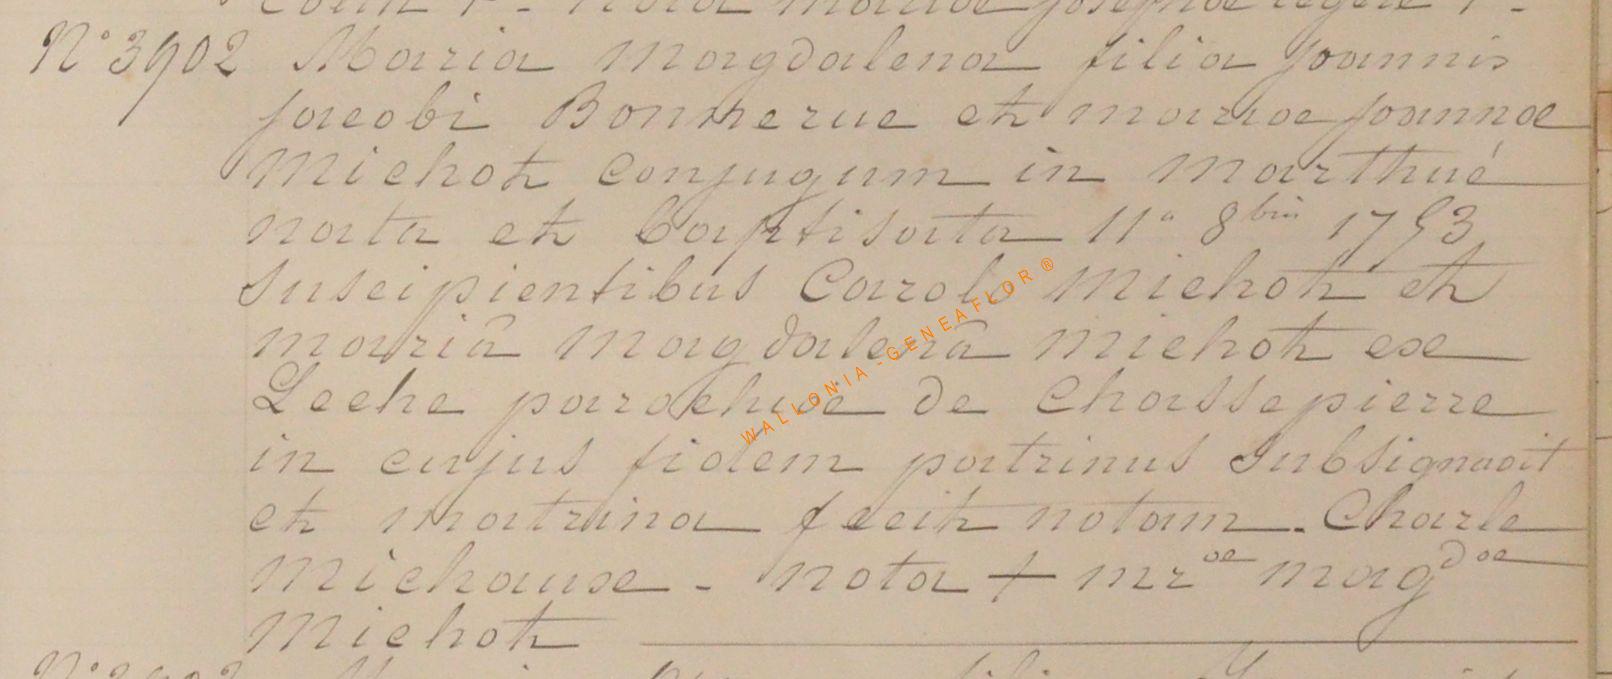 N° 3902 Maria Magdalena filia Joannis
Jacobi Bonnerue et mariae Joannae
Michot conjugum in Marthué
nata et baptisata 11ª 8bris 1753
suscipientibus Carolo Michot et
mariâ Magdalenâ Michot ex
Leche parochiae de Chassepierre
in cujus fidem patrinus subsignavit
et matrina fecit notam. Charle
Michaux - nota + mræ magdæ
Michot
WALLONIA-GENEAFLOR ®